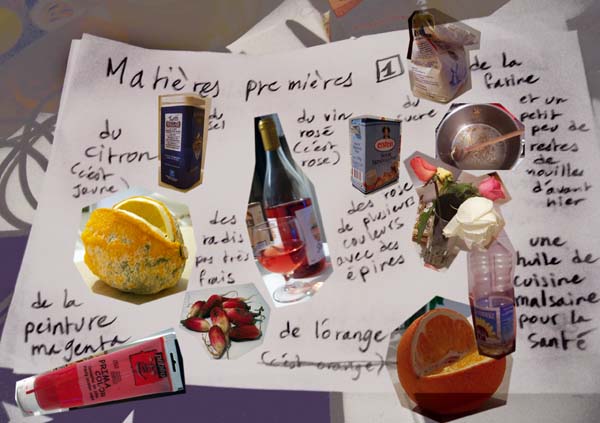 Matières premières 1
de la
farine
du
sel
du vin
rosé
(c'est
rose)
du
sucre
et un
petit
peu de
restes
de
nouilles
d'avant
hier
du
citron
(c'est
jaune)
des
radis
pas très
frais
des rose
de plusieurs
couleurs
avec des
épires
une
huile de
cuisine
malsaine
pour la
santé
de la
peinture
magenta
PRIMA
COLOR
de l'orange
(c'est orange)